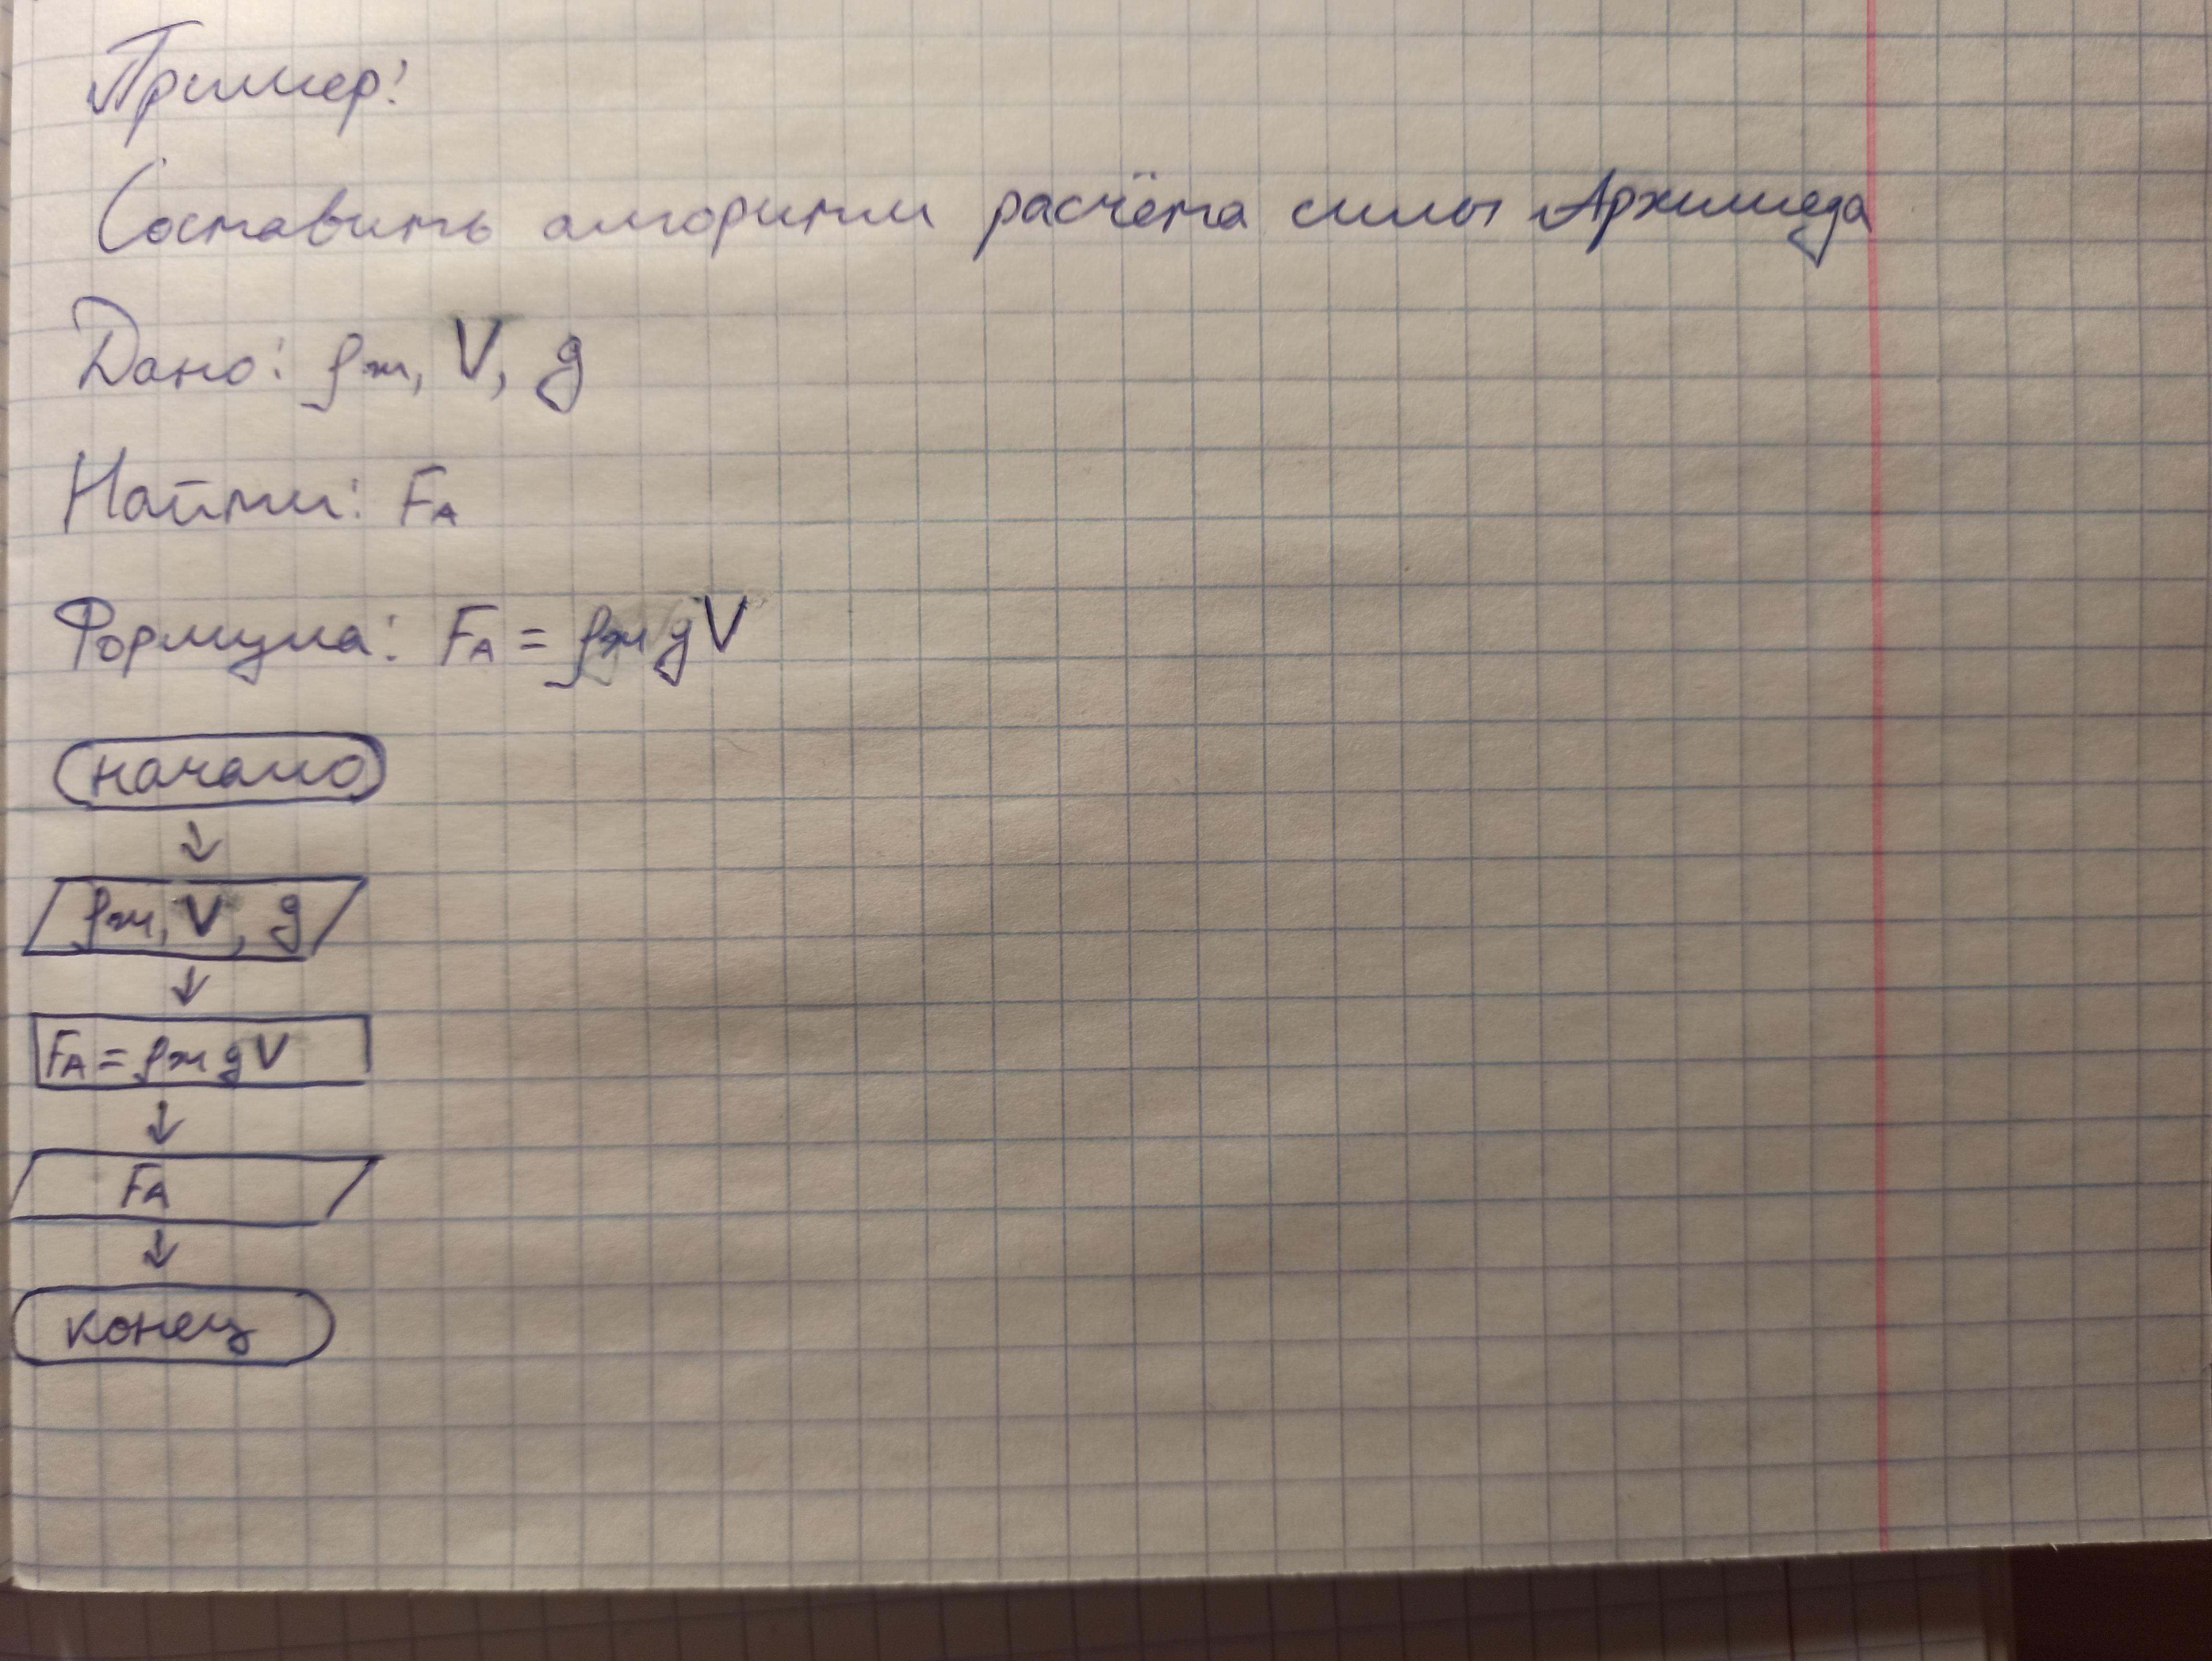 Пример:
Составить алгоритм расчёта силы Архимеда
Дано: ρж, V, g
Найти: FA
Формула: FA = ρж g V
начало
↓
ρж, V, g
↓
FA = ρж g V
↓
FA
↓
конец